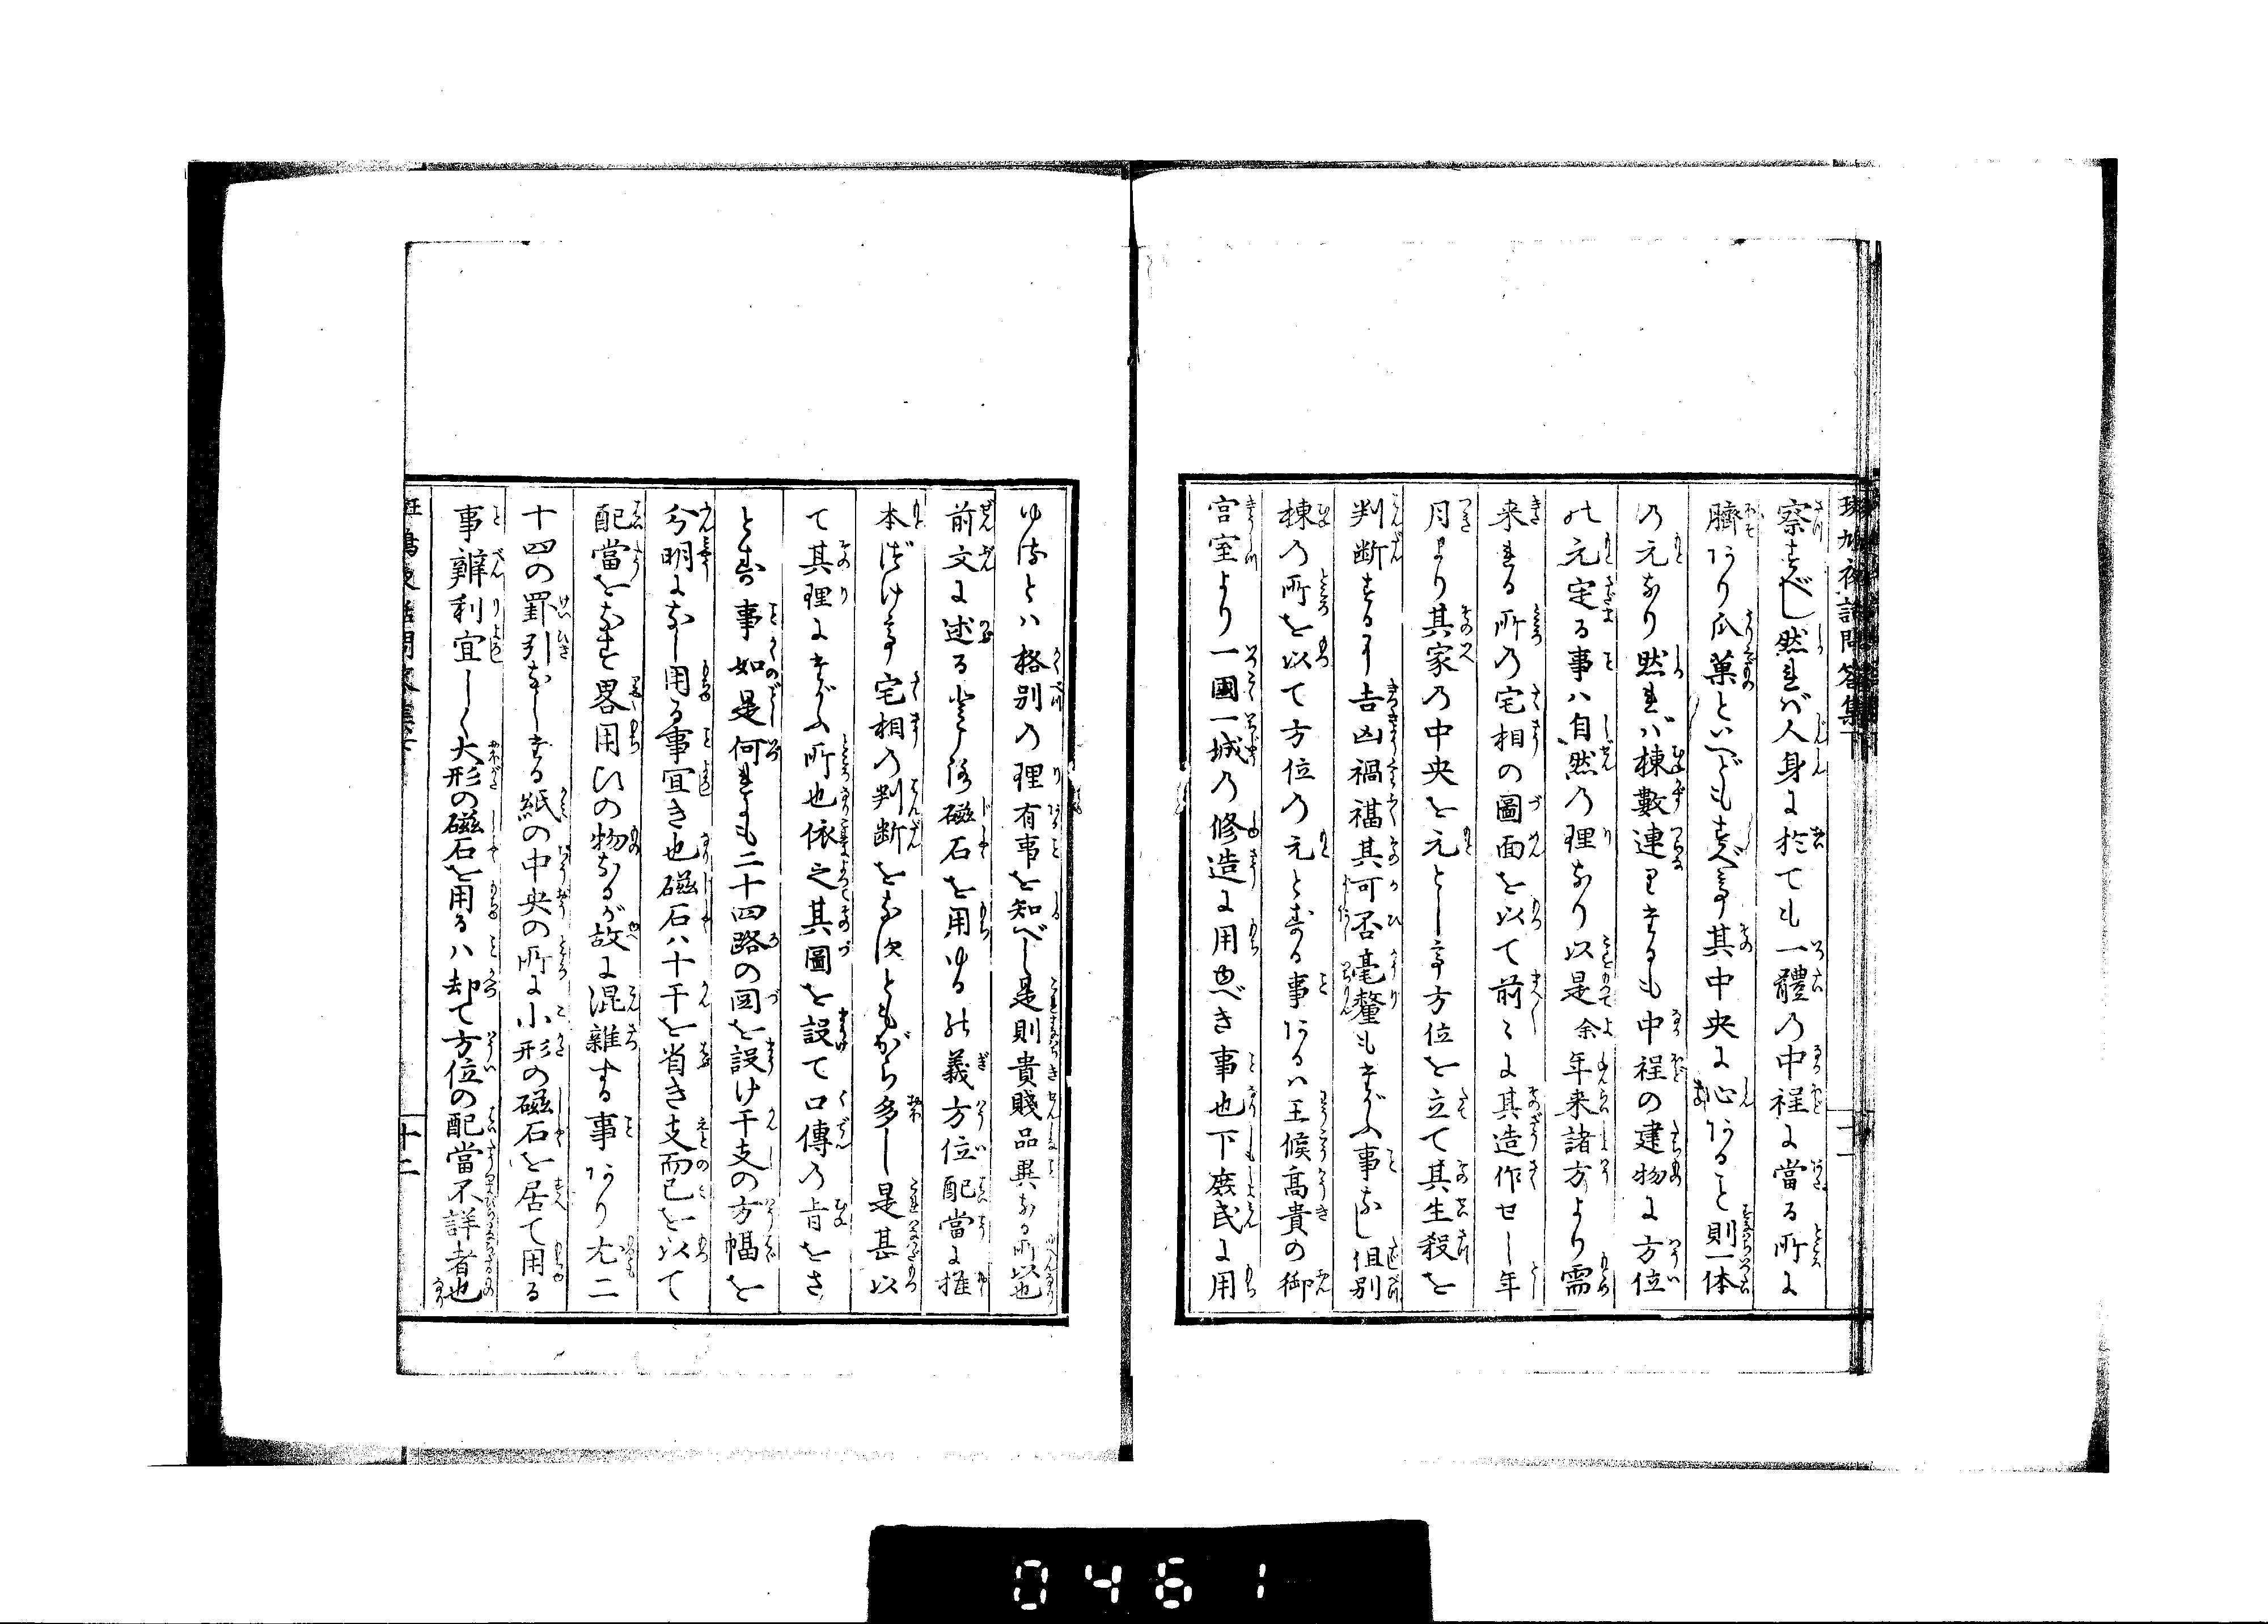 察すべし然れば人身に於ても一體の中程に當る所に
臍あり瓜菓といへどもすべて其中央に心あること則一体
の元なり然れば棟數連りきるも中程の建物に方位
の元定る事ハ自然の理なり以是余年来諸方より需
来れる所の宅相の圖面を以て前々に其造作せし年
月より其家の中央を元として方位を立て其生殺を
判断するに吉凶禍福其可否毫釐もきがふ事なし但別
棟の所を以て方位の元とする事あるハ王候高貴の御
宮室より一國一城の修造に用ゆべき事也下庶民に用
ゆるとハ格別の理有事を知べし是則貴賤品異なる所以也
前文に述る如く磁石を用ゆるの義方位配當に推
本づけて宅相の判断をなすともがら多し是甚以
て其理にきがふ所也依之其圖を設て口傳の旨をさ
とす事如是何れも二十四路の図を設け干支の方幅を
分明になし用る事宜き也磁石ハ十干を省き支而已を以て
配當をなす畧用ひの物なるが故に混雜する事あり尤二
十四の罫引なしきる紙の中央の所に小形の磁石を居て用る
事辨利宜しく大形の磁石を用るハ却て方位の配當不詳者也
十二
0461